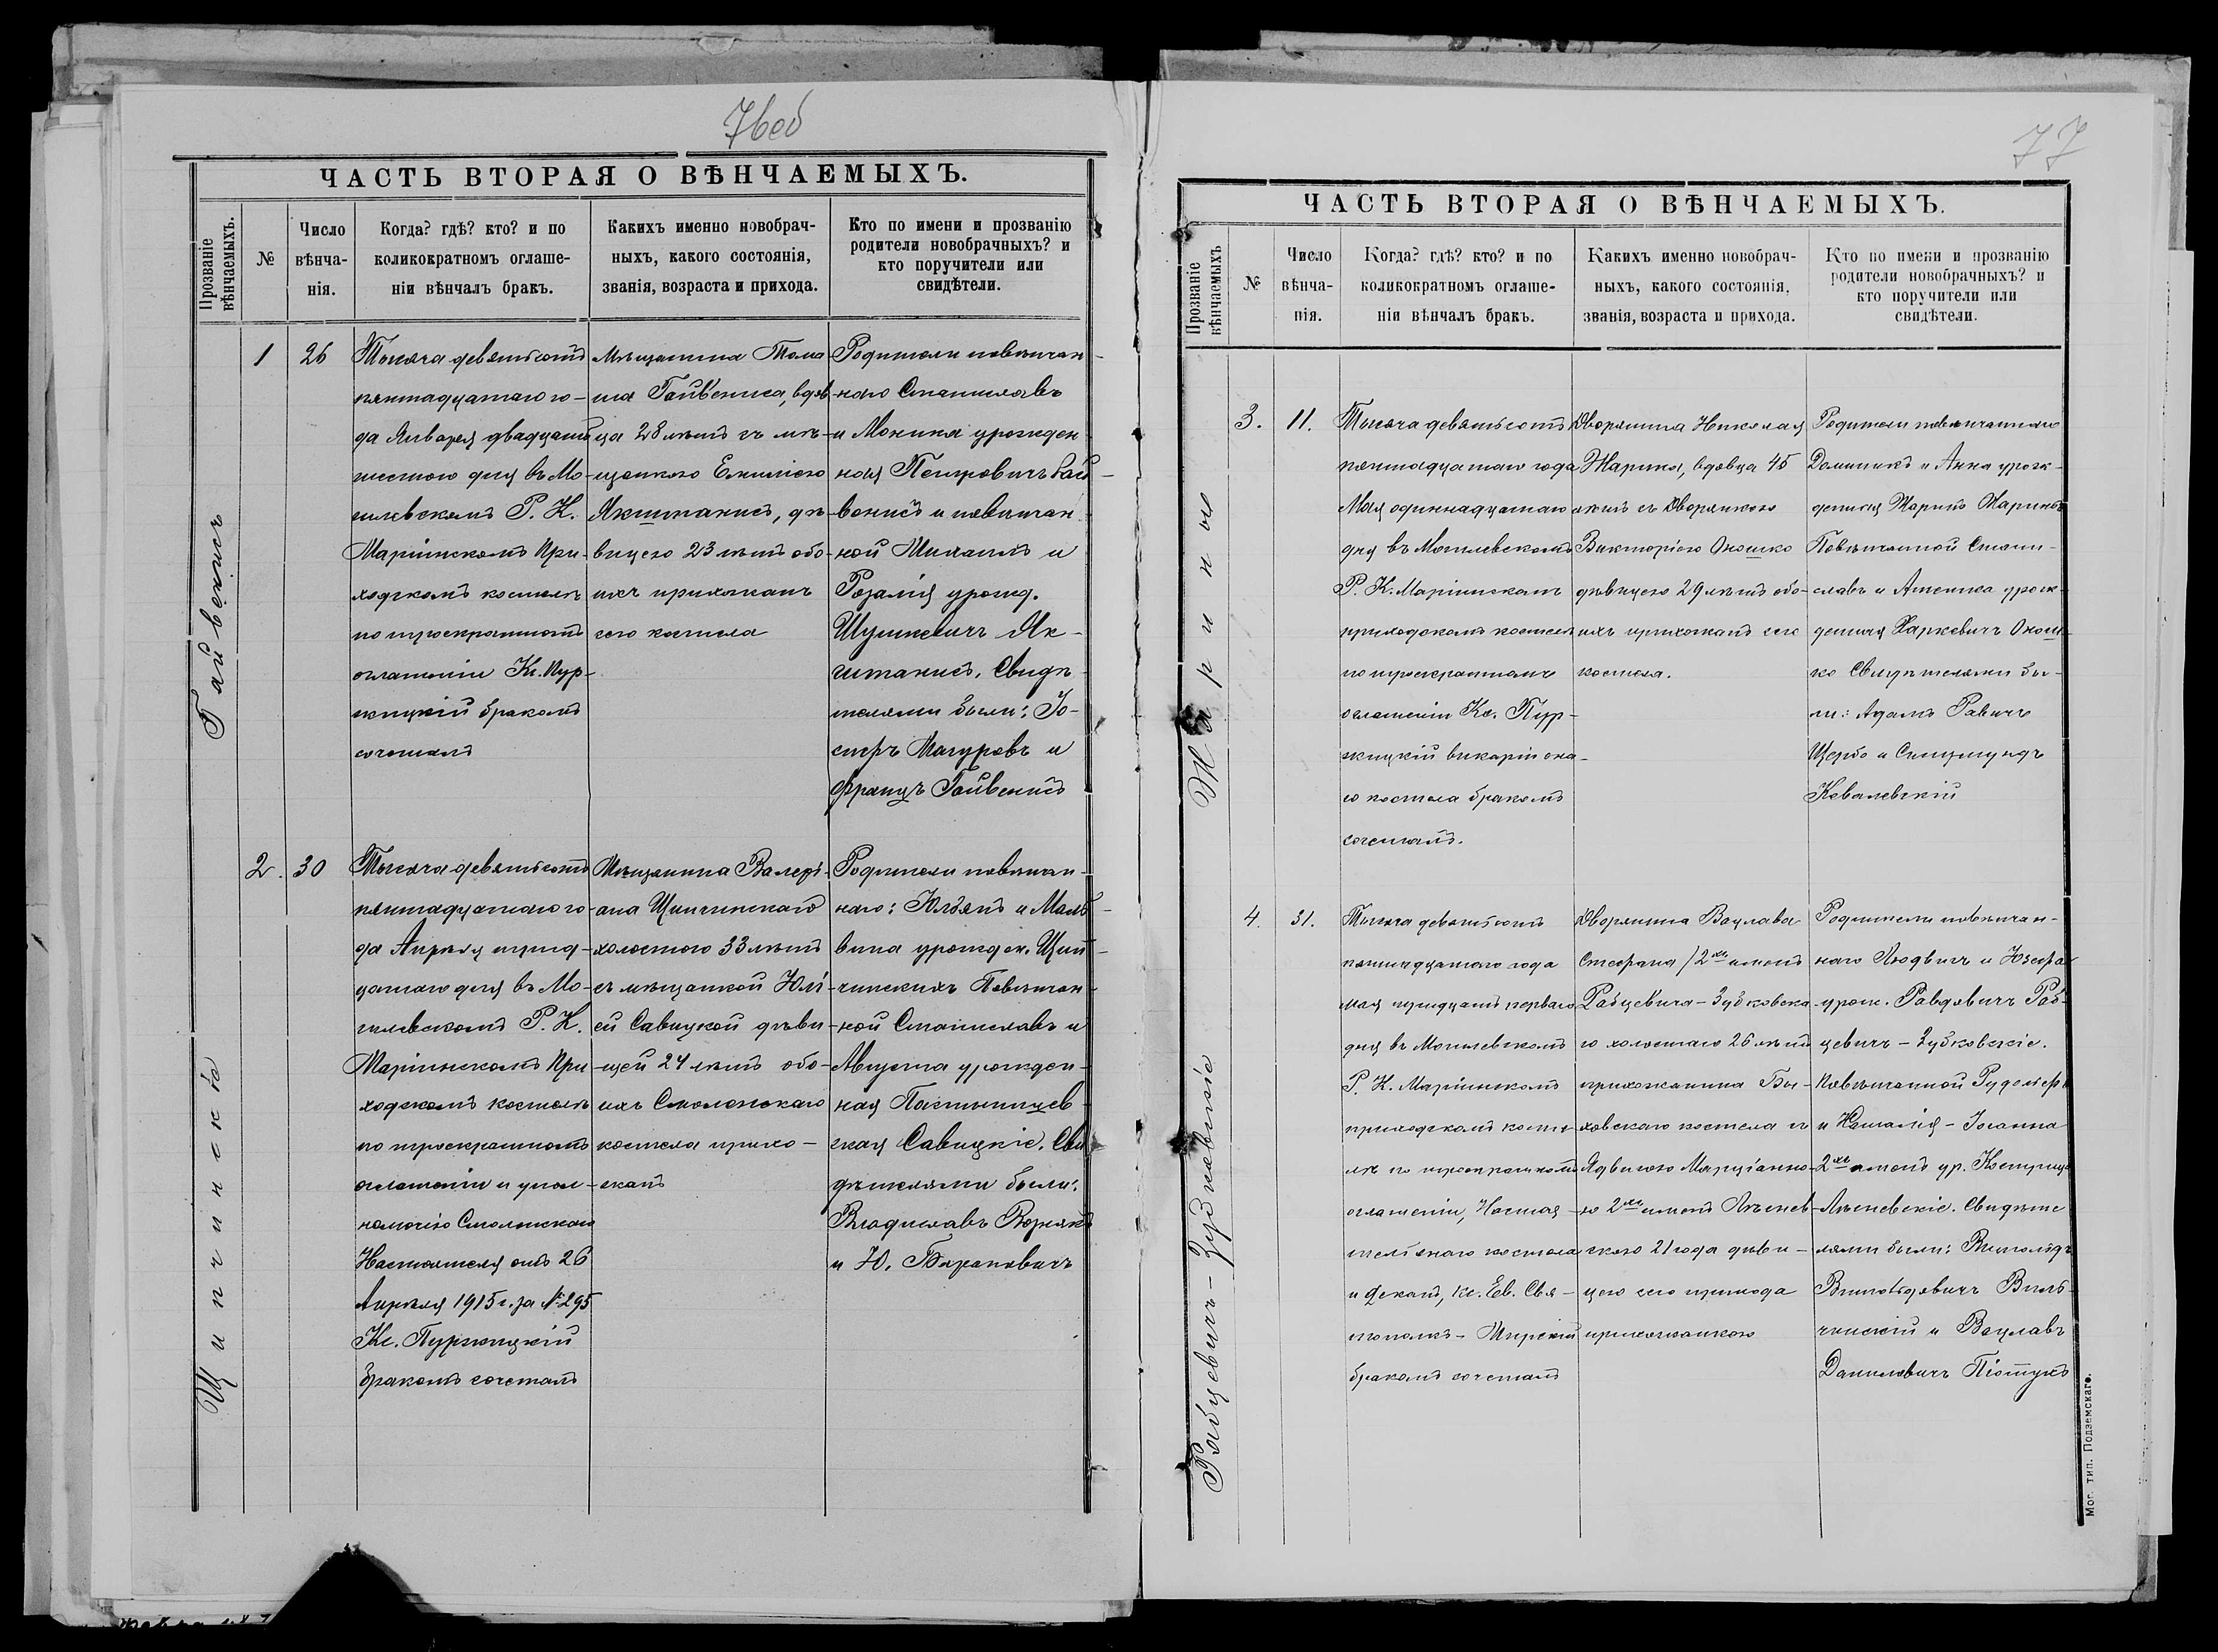 76 об
ЧАСТЬ ВТОРАЯ О ВѢНЧАЕМЫХЪ.
Прозваніе вѣнчаемыхъ.
№
Число
вѣнча-
нія.
Когда? гдѣ? кто? и по
коликократномъ оглаше-
ніи вѣнчалъ бракъ.
Какихъ именно новобрач-
ныхъ, какого состоянія,
званія, возраста и прихода.
Кто по имени и прозванію
родители новобрачныхъ? и
кто поручители или
свидѣтели.
Гайвенисъ
1
26
Тысяча девятьсотъ
пятнадцатаго го-
да Января двадцать
шестого дня въ Мо-
гилевскомъ Р. К.
Маріинскомъ При-
ходскомъ костелѣ
по троекратномъ
оглашеніи Кс. Пур-
жицкій бракомъ
сочеталъ
Мѣщанина Тома-
ша Гайвениса, вдов-
ца 28 лѣтъ съ мѣ-
щанкою Емиліею
Якштанисъ, дѣ-
вицею 23 лѣтъ обо-
ихъ прихожанъ
сего костела
Родители повѣнчан-
наго Станиславъ
и Моника урожден-
ная Петровичъ Гай-
венисъ и повѣнчан-
ной Михаилъ и
Розалія урожд.
Шушкевичъ Як-
штанисъ. Свидѣ-
телями были: Іо-
сифъ Мацуровъ и
Францъ Гайвенисъ
Щипчинскій
2.
30
Тысяча девятьсотъ
пятнадцатаго го-
да Апрѣля трид-
цатаго дня въ Мо-
гилевскомъ Р. К.
Маріинскомъ При-
ходскомъ костелѣ
по троекратномъ
оглашеніи и упол-
номочію Смоленскаго
Настоятеля отъ 26
Апрѣля 1915 г. за № 295
Кс. Пуржицкій
бракомъ сочеталъ
Мѣщанина Валері-
ана Щипчинскаго
холостого 33 лѣтъ
съ мѣщанкой Юлі-
ей Савицкой дѣви-
цей 24 лѣтъ обо-
ихъ Смоленскаго
костела прихо-
жанъ
Родители повѣнчан-
наго: Юльянъ и Маль-
вина урожден. Щип-
чинскихъ Повѣнчан-
ной Станиславъ и
Августа урожден-
ная
ская Савицкіе. Сви-
дѣтелями были:
Владиславъ
и Ю. Барановичъ
77
ЧАСТЬ ВТОРАЯ О ВѢНЧАЕМЫХЪ.
Прозваніе вѣнчаемыхъ
№
Число
вѣнча-
нія.
Когда? гдѣ? кто? и по
коликократномъ оглаше-
ніи вѣнчалъ бракъ.
Какихъ именно новобрач-
ныхъ, какого состоянія,
званія, возраста и прихода.
Кто по имени и прозванію
родители новобрачныхъ? и
кто поручители или
свидѣтели.
Жарины
3.
11.
Тысяча девятьсотъ
пятнадцатаго года
Мая одиннадцатаго
дня въ Могилевскомъ
Р. К. Маріинскомъ
приходскомъ костелѣ
по троекратномъ
оглашеніи Кс. Пур-
жицкій викарій она-
го костела бракомъ
сочеталъ.
Дворянина Николая
Жарина, вдовца 45
лѣтъ съ Дворянкою
Викторіею Оношко
дѣвицею 29 лѣтъ обо-
ихъ прихожанъ сего
костела.
Родители повѣнчаннаго
Доминикъ и Анна урож-
денная Жаринъ Жарины
Повѣнчанной Стани-
славъ и урож-
денная Харкевичъ Онош-
ко Свидѣтелями бы-
ли: Адамъ Равичъ
Щербо и Сигизмундъ
Ковалевскій
Рабцевичъ-Зубковскіе
4.
31.
Тысяча девятьсотъ
пятнадцатаго года
мая тридцать перваго
дня въ Могилевскомъ
Р. К. Маріинскомъ
приходскомъ косте-
лѣ по троекратномъ
оглашеніи, Настоя-
тель онаго костела
и деканъ, кс. Ев. Свя-
тополкъ-Мирскій
бракомъ сочеталъ
Дворянина Вацлава
Стефана /2хъ именъ
Рабцевича-Зубковска-
го холостаго 26 лѣтъ
прихожанина Бы-
ховскаго костела съ
Ядвигою Марціанно-
ю 2хъ именъ Лѣснев-
скою 21 года дѣви-
цею сего прихода
прихожанкою
Родители повѣнчан-
наго Людвигъ и Юзефа
урож. Равдовичъ Раб-
цевичъ-Зубковскіе.
Повѣнчанной Рудольфъ
и Наталія-Іоанна
2хъ именъ ур.
Лѣсневскіе. Свидѣте-
лями были: Витольдъ
Витольдовичъ Виль-
чинскій и Вацлавъ
Даниловичъ Піотухъ
Мог. тип. Подземскаго.